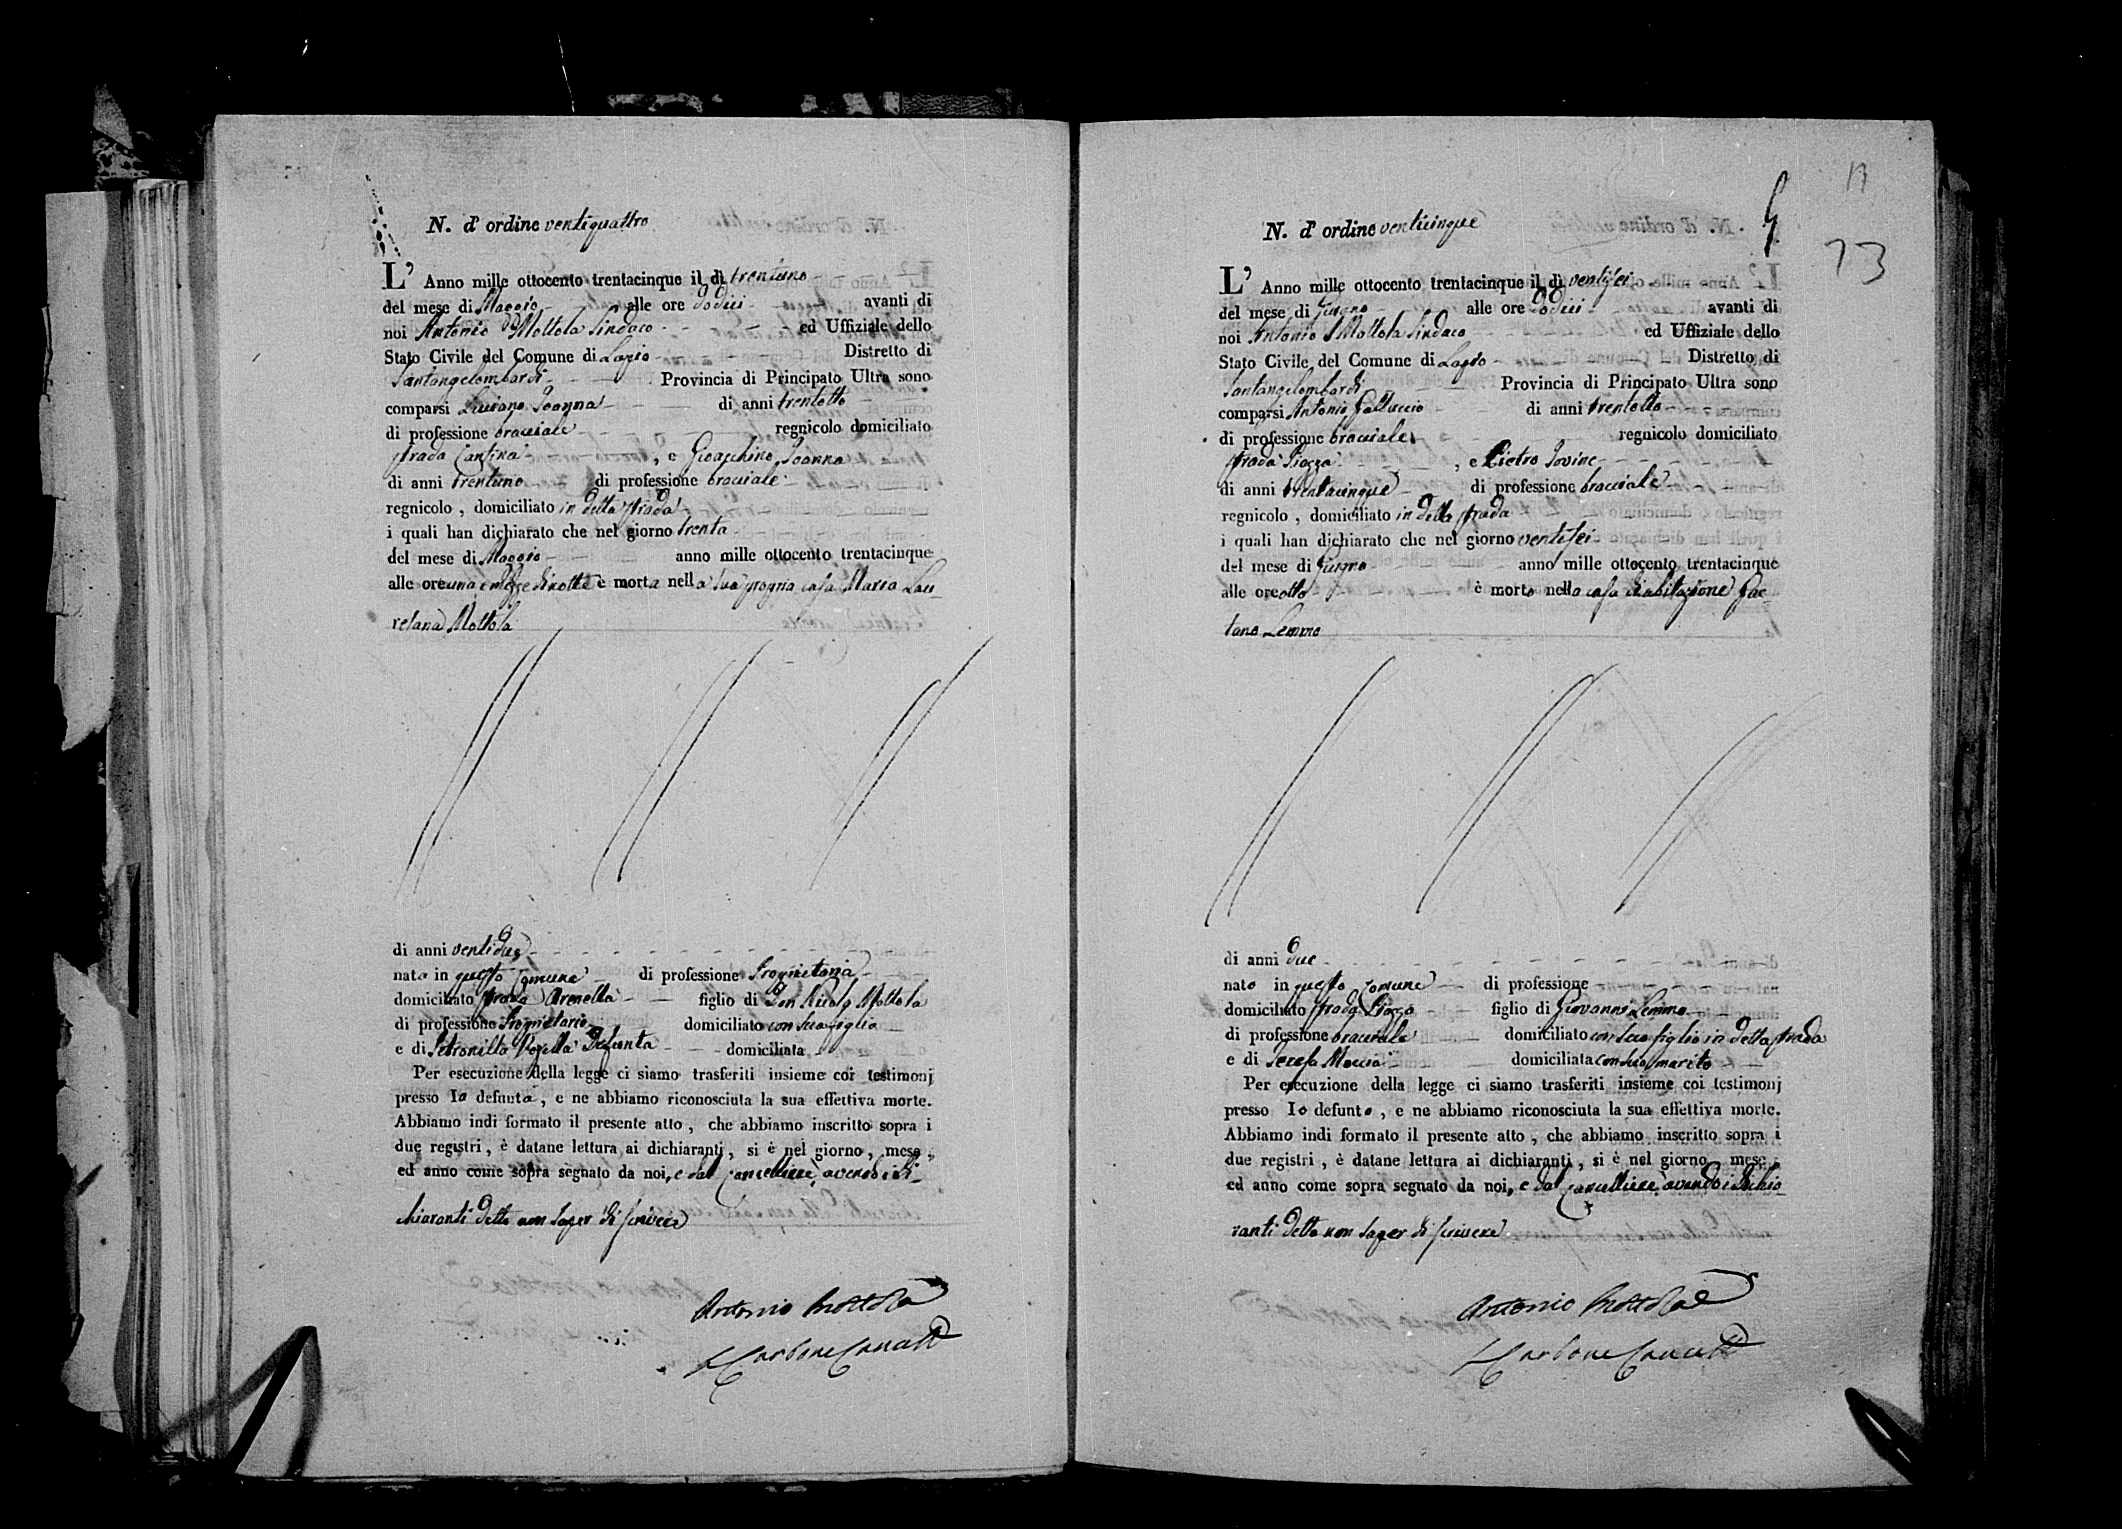 N. d' ordine ventiquattro
L' Anno mille ottocento trentacinque il dì trentuno
del mese di Maggio alle ore dodici avanti di
noi Antonio Mottola Sindaco ed Uffiziale dello
Stato Civile del Comune di Lapio Distretto di
Santangelombardi Provincia di Principato Ultra sono
comparsi Luciano Joanna di anni trentotto
di professione bracciale regnicolo domiciliato
strada Cantina, e Gioacchino Joanna
di anni trentuno di professione bracciale
regnicolo, domiciliato in detta strada
i quali han dichiarato che nel giorno trenta
del mese di Maggio anno mille ottocento trentacinque
alle ore una e mezze di notte è morta nella sua propria casa Maria Lau-
retana Mottola
di anni ventidue
nata in questo Comune di professione Proprietaria
domiciliato strada Arenella figlio di Don Nicola Mottola
di professione Proprietario domiciliato con sua figlia
e di Petronilla Defunta domiciliata
Per esecuzione della legge ci siamo trasferiti insieme coi testimonj
presso la defunta, e ne abbiamo riconosciuta la sua effettiva morte.
Abbiamo indi formato il presente atto, che abbiamo inscritto sopra i
due registri, è datane lettura ai dichiaranti, si è nel giorno, mese,
ed anno come sopra segnato da noi, e dal Cancelliere, avendo i di-
chiaranti detto non saper di scrivere
Antonio Mottola
Carbone Cancell.
17
73
N. d' ordine venticinque
L' Anno mille ottocento trentacinque il dì ventisei
del mese di Giugno alle ore dodici avanti di
noi Antonio Mottola Sindaco ed Uffiziale dello
Stato Civile del Comune di Lapio Distretto di
Santangelombardi Provincia di Principato Ultra sono
comparsi Antonio Galluccio di anni trentotto
di professione bracciale regnicolo domiciliato
strada Piazza, e Pietro Iovine
di anni trentacinque di professione bracciale
regnicolo, domiciliato in detta strada
i quali han dichiarato che nel giorno ventisei
del mese di Giugno anno mille ottocento trentacinque
alle ore otto è morto nella casa di abitazione Gae-
tano Lemmo
di anni due
nato in questo Comune di professione
domiciliato strada Piazza figlio di Giovanni Lemmo
di professione bracciale domiciliato con suo figlio in detta strada
e di domiciliata con suo marito
Per esecuzione della legge ci siamo trasferiti insieme coi testimonj
presso lo defunto, e ne abbiamo riconosciuta la sua effettiva morte.
Abbiamo indi formato il presente atto, che abbiamo inscritto sopra i
due registri, è datane lettura ai dichiaranti, si è nel giorno, mese,
ed anno come sopra segnato da noi, e dal Cancelliere, avendo i dichia-
ranti detto non saper di scrivere
Antonio Mottola
Carbone Cancell.